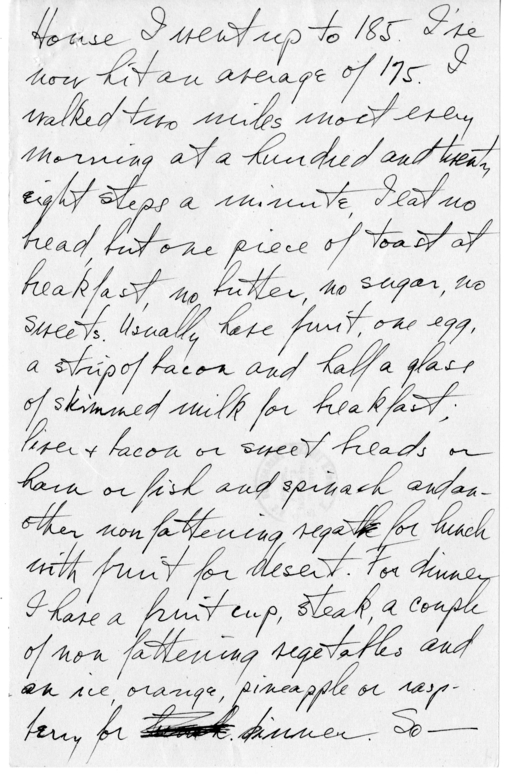 House I went up to 185. I've
now hit an average of 175. I
walked two miles most every
morning at a hundred and twenty
eight steps a minute, I eat no
bread, but one piece of toast at
breakfast, no butter, no sugar, no
sweets. Usually have fruit, one egg,
a strip of bacon and half a glass
of skimmed milk for breakfast;
liver & bacon or sweet breads or
ham or fish and spinach and an-
other non fattening vegatle for lunch
with fruit for desert. For dinner
I have a fruit cup, steak, a couple
of non fattening vegetables and
an ice, orange, pineapple or rasp-
berry for dinner. So —